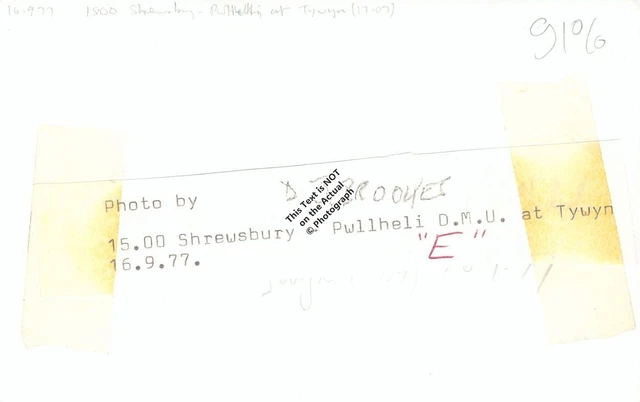 16.9.77 1500 Shrewsbury - Pwllheli at Tywyn (17.07)
91%
Photo by D BROOKES
15.00 Shrewsbury Pwllheli D.M.U. at Tywyn
"E"
16.9.77.
This Text is NOT
on the Actual
© Photograph